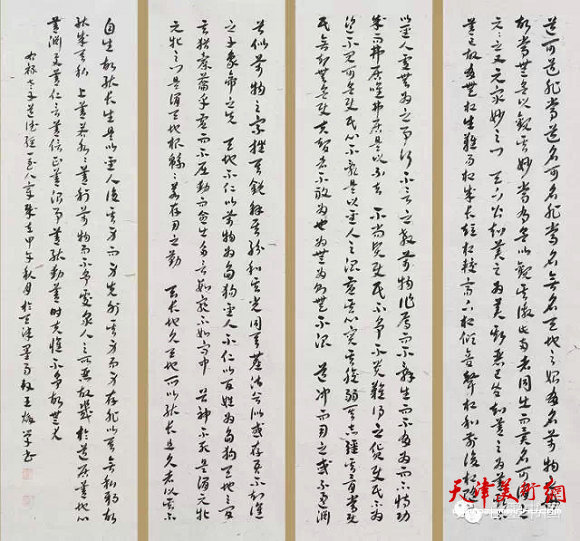 道可道非常道名可名非常名無名天地之始有名萬物之母
故常無欲以觀其妙常有欲以觀其徼此兩者同出而異名同謂之
元元之又元眾妙之門 天下皆知美之為美斯惡已皆知善之為善斯不
善已故有無相生難易相成長短相較高下相傾音聲相和前後相隨是
以聖人處無為之事行不言之教萬物作焉而不辭生而不有為而不恃功
成而弗居夫唯弗居是以不去 不尚賢使民不爭不貴難得之貨使民不為
盜不見可欲使民心不亂是以聖人之治虛其心實其腹弱其志強其骨常使
民無知無欲使夫知者不敢為也為無為則無不治 道沖而用之或不盈淵
兮似萬物之宗挫其銳解其紛和其光同其塵湛兮似或存吾不知誰
之子象帝之先 天地不仁以萬物為芻狗聖人不仁以百姓為芻狗天地之間
其猶橐籥乎虛而不屈動而愈出多言數窮不如守中 谷神不死是謂元牝
元牝之門是謂天地根綿綿若存用之不勤 天長地久天地所以能長且久者以其不
自生故能長生是以聖人後其身而身先外其身而身存非以其無私邪故
能成其私 上善若水水善利萬物而不爭處眾人之所惡故幾於道居善地心
善淵與善仁言善信正善治事善能動善時夫惟不爭故無尤
右錄老子道德經一至八章歲在甲午秋月於天津
天津美術網